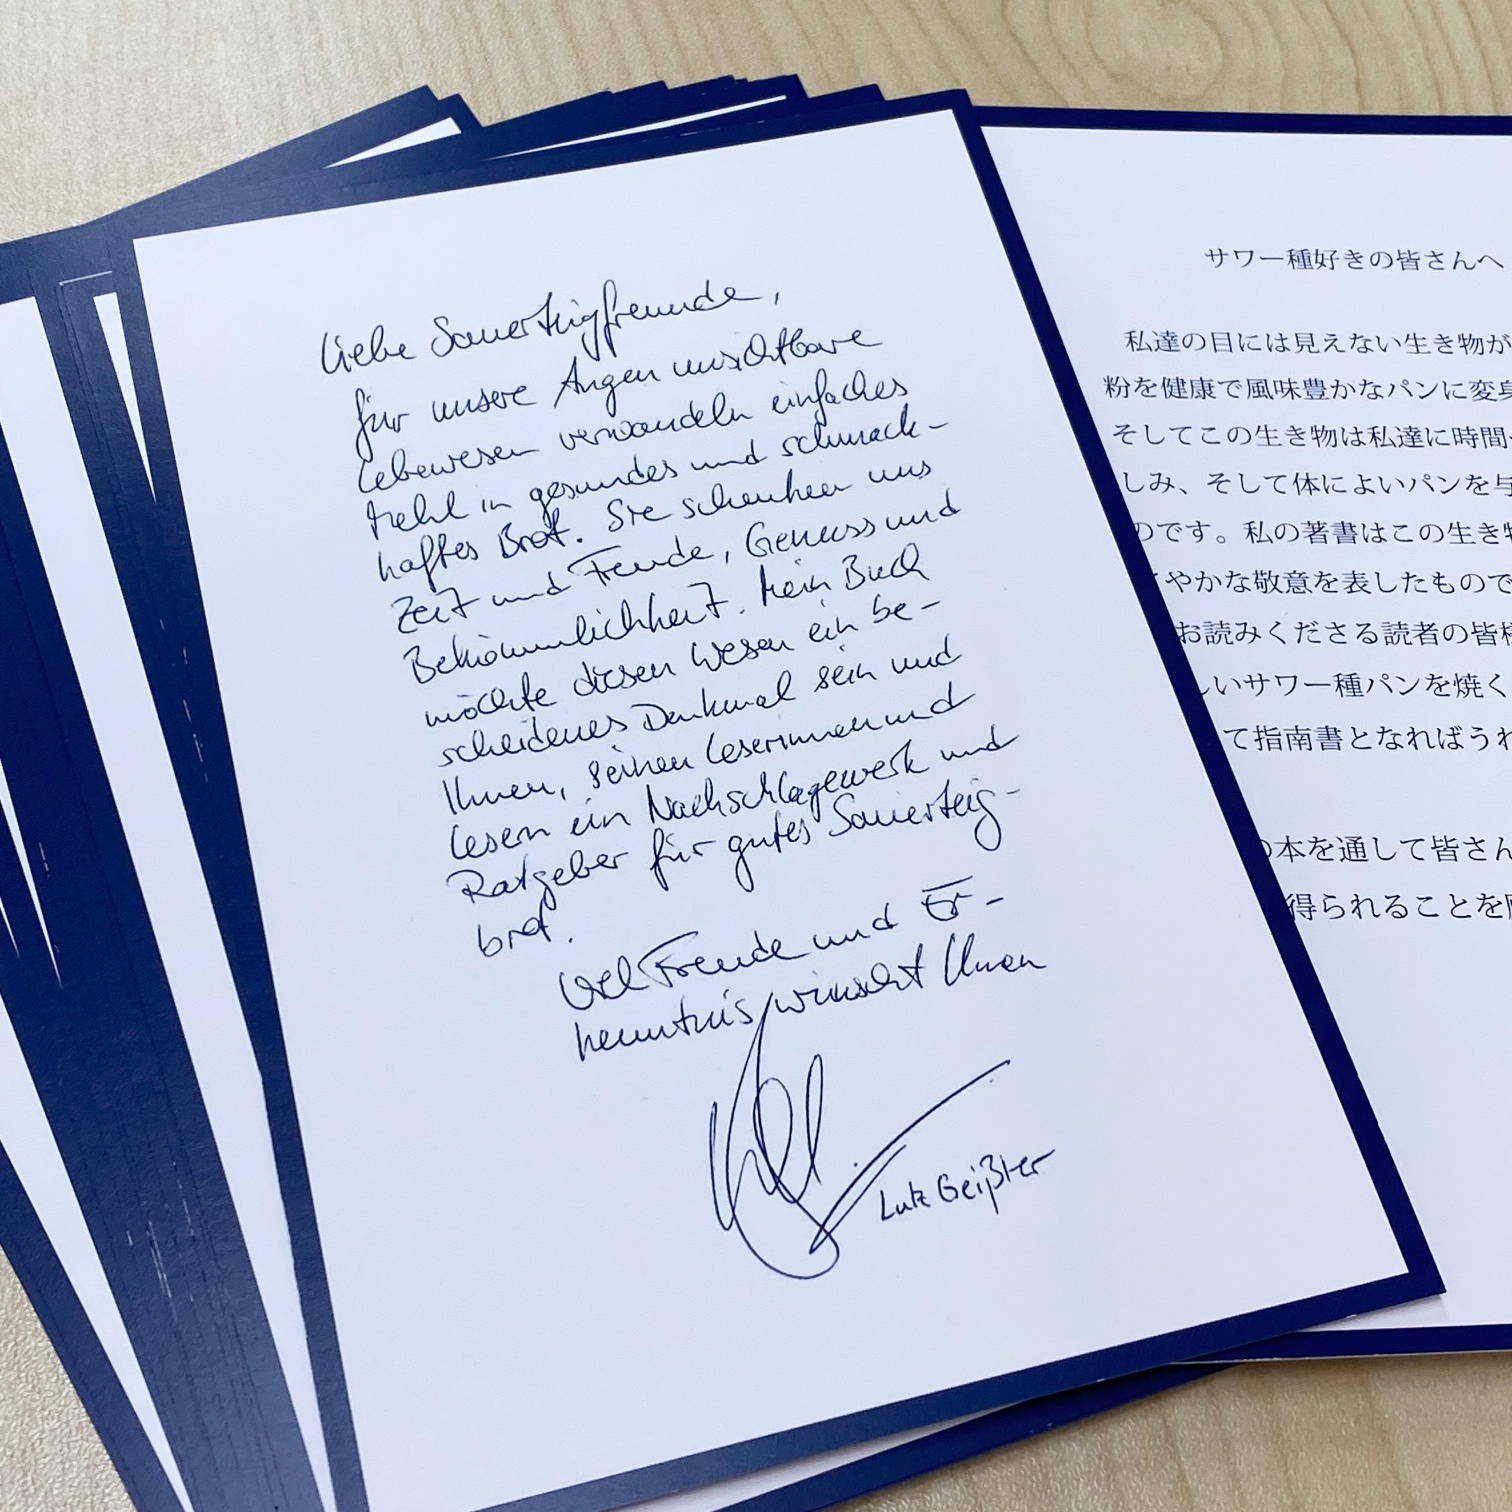 Liebe Sauerteigfreunde,
für unsere Augen unsichtbare
Lebewesen verwandeln einfaches
Mehl in gesundes und schmack-
haftes Brot. Sie schenken uns
Zeit und Freude, Genuss und
Bekömmlichkeit. Mein Buch
möchte diesen Wesen ein be-
scheidenes Denkmal sein und
Ihnen, seinen Leserinnen und
Lesern ein Nachschlagewerk und
Ratgeber für gutes Sauerteig-
brot.
Viel Freude und Er-
kenntnis wünscht Ihnen
Lutz Geißler
サワー種好きの皆さんへ
私達の目には見えない生き物が
粉を健康で風味豊かなパンに変身
そしてこの生き物は私達に時間
しみ、そして体によいパンを与
のです。私の著書はこの生き物
やかな敬意を表したもので
お読みくださる読者の皆様
いサワー種パンを焼く
て指南書となればうれ
の本を通して皆さん
得られることを願